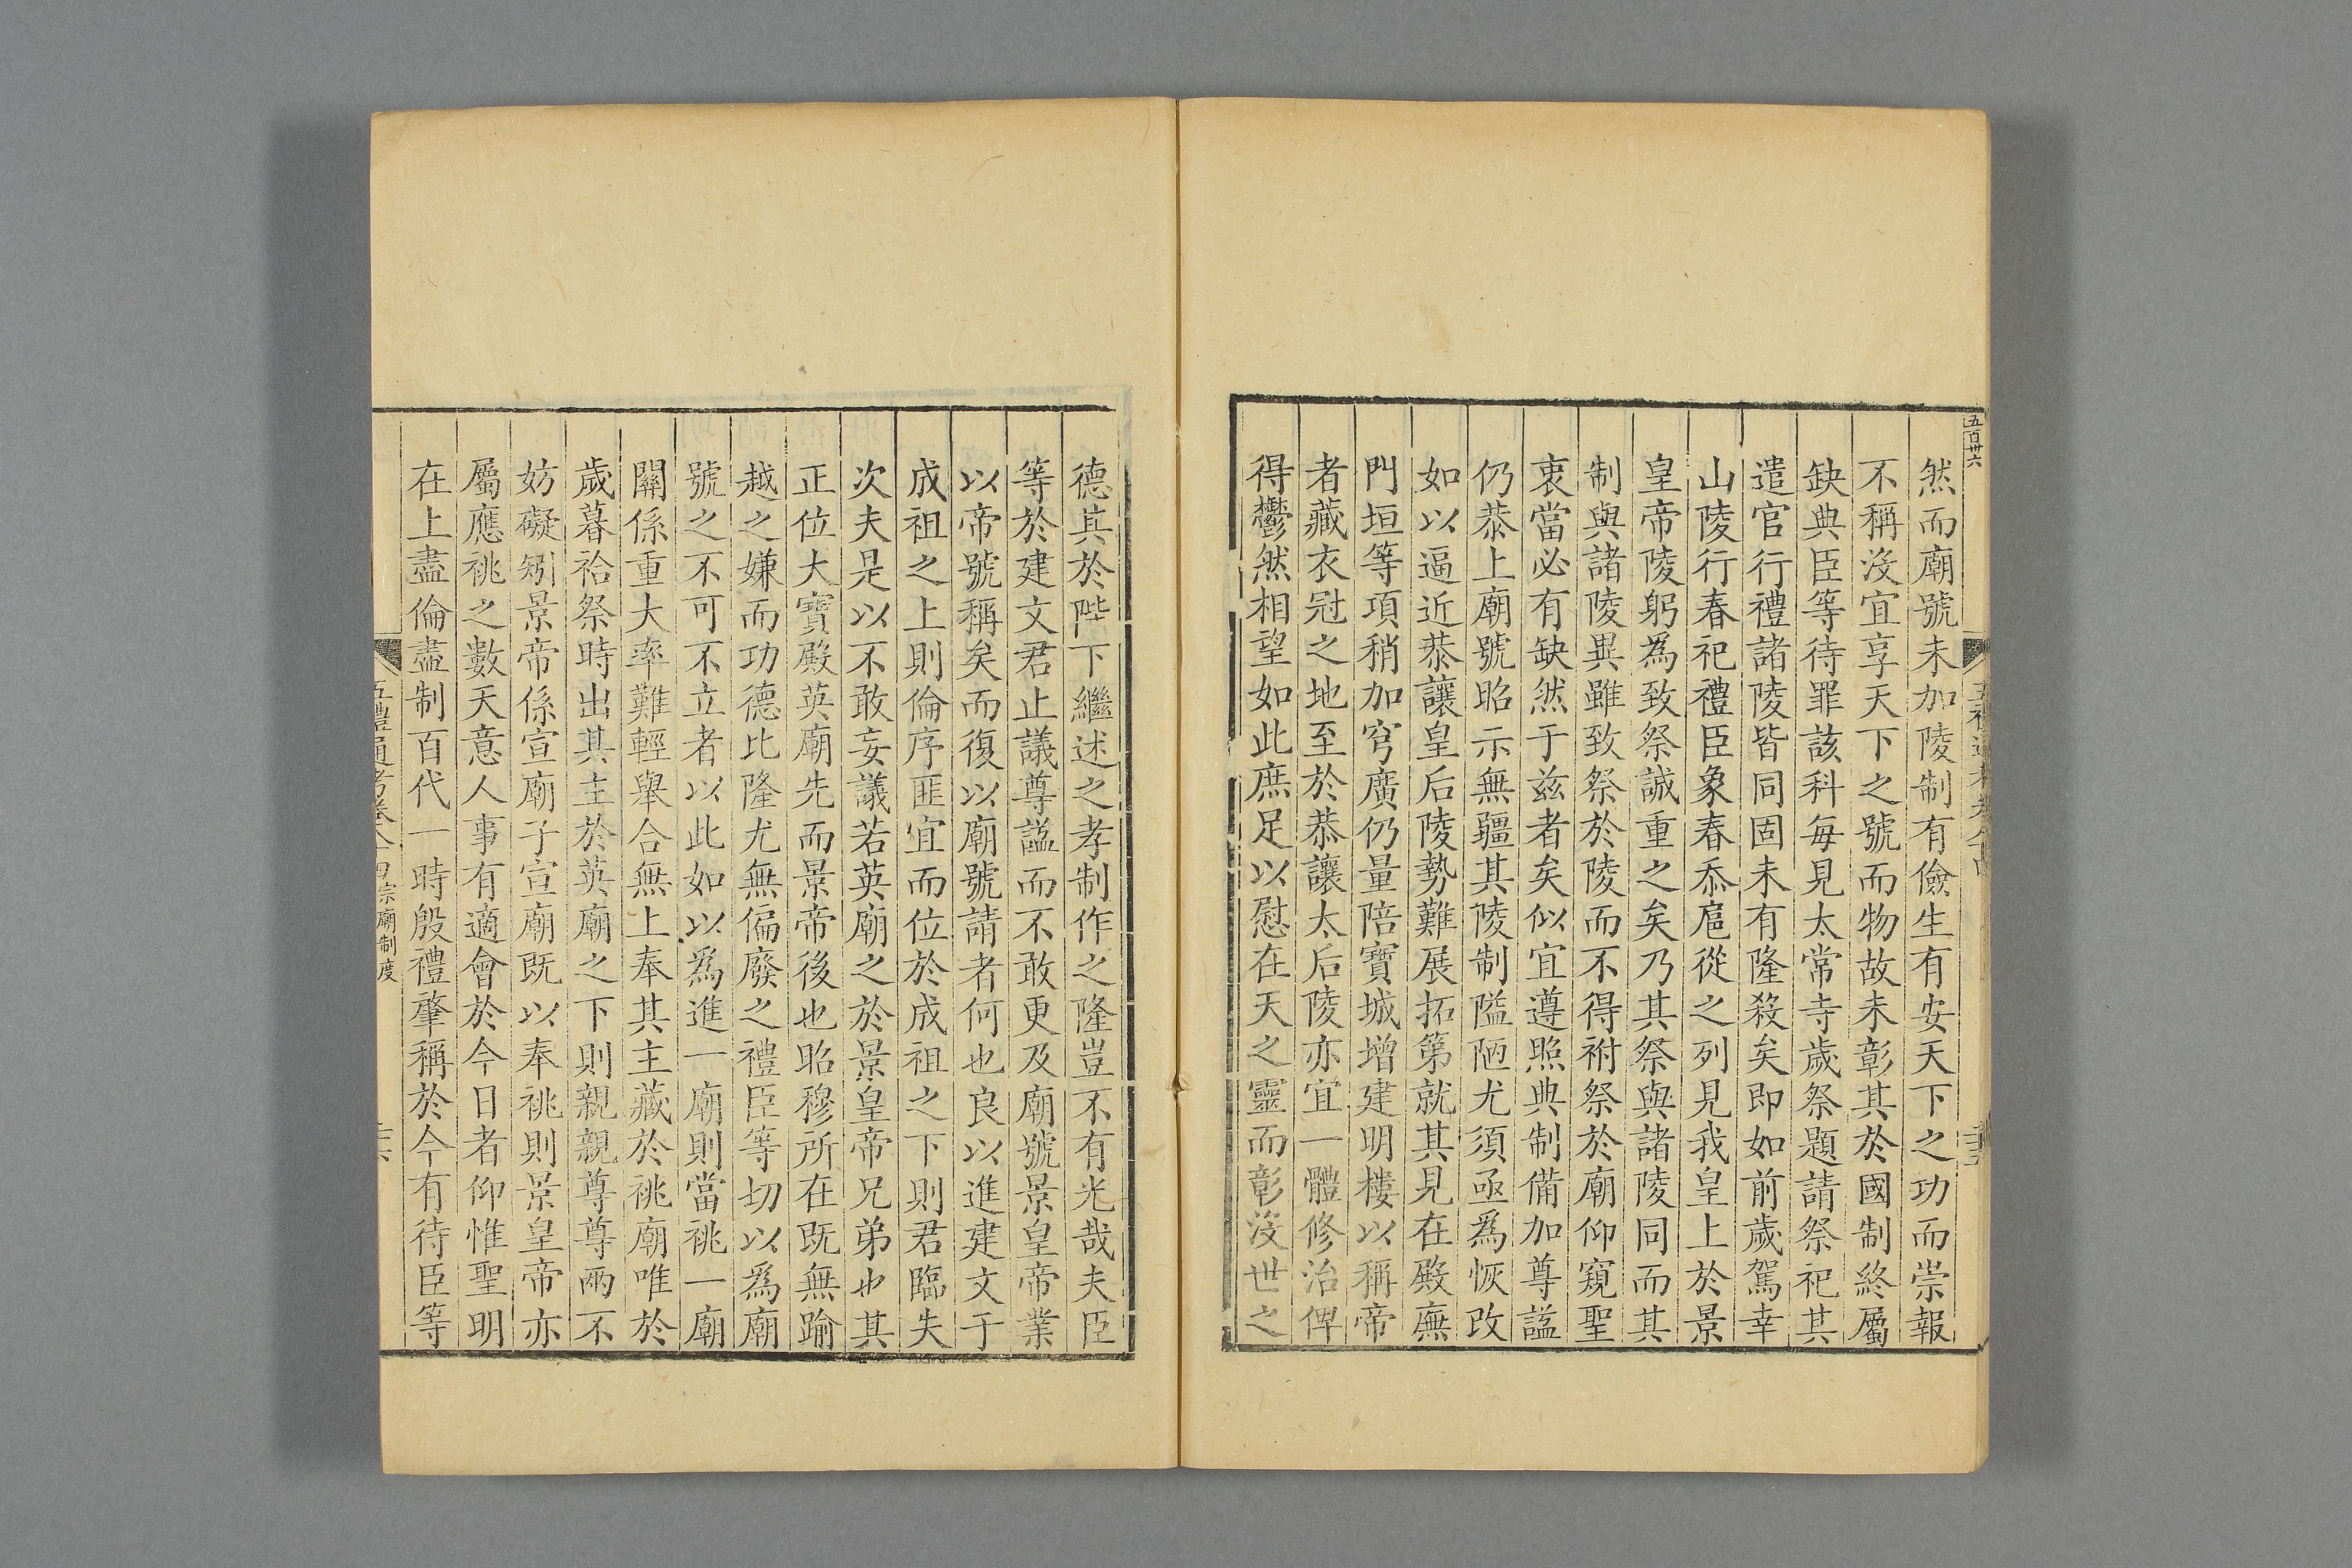 五百卅六
然而廟號未加陵制有儉生有安天下之功而崇報
不稱沒宜享天下之號而物故未彰其於國制終屬
缺典臣等待罪該科每見太常寺歲祭題請祭祀其
遣官行禮諸陵皆同固未有隆殺矣即如前歲駕幸
山陵行春祀禮臣象春忝扈從之列見我皇上於景
皇帝陵躬爲致祭誠重之矣乃其祭與諸陵同而其
制與諸陵異雖致祭於陵而不得祔祭於廟仰窺聖
衷當必有缺然于兹者矣似宜遵照典制備加尊謚
仍恭上廟號昭示無疆其陵制隘陋尤須亟爲恢改
如以逼近恭讓皇后陵勢難展拓第就其見在殿廡
門垣等項稍加穹廣仍量陪寶城增建明樓以稱帝
者藏衣冠之地至於恭讓太后陵亦宜一體修治俾
得鬱然相望如此庶足以慰在天之靈而彰沒世之
德其於陛下繼述之孝制作之隆豈不有光哉夫臣
等於建文君止議尊謚而不敢更及廟號景皇帝業
以帝號稱矣而復以廟號請者何也良以進建文于
成祖之上則倫序匪宜而位於成祖之下則君臨失
次夫是以不敢妄議若英廟之於景皇帝兄弟也其
正位大寶殿英廟先而景帝後也昭穆所在既無踰
越之嫌而功德比隆尤無偏廢之禮臣等切以爲廟
號之不可不立者以此如以爲進一廟則當祧一廟
關係重大率難輕舉合無上奉其主藏於祧廟唯於
歲暮祫祭時出其主於英廟之下則親親尊尊兩不
妨礙矧景帝係宣廟子宣廟既以奉祧則景皇帝亦
屬應祧之數天意人事有適會於今日者仰惟聖明
在上盡倫盡制百代一時殷禮肇稱於今有待臣等
五禮通考卷八十四宗廟制度